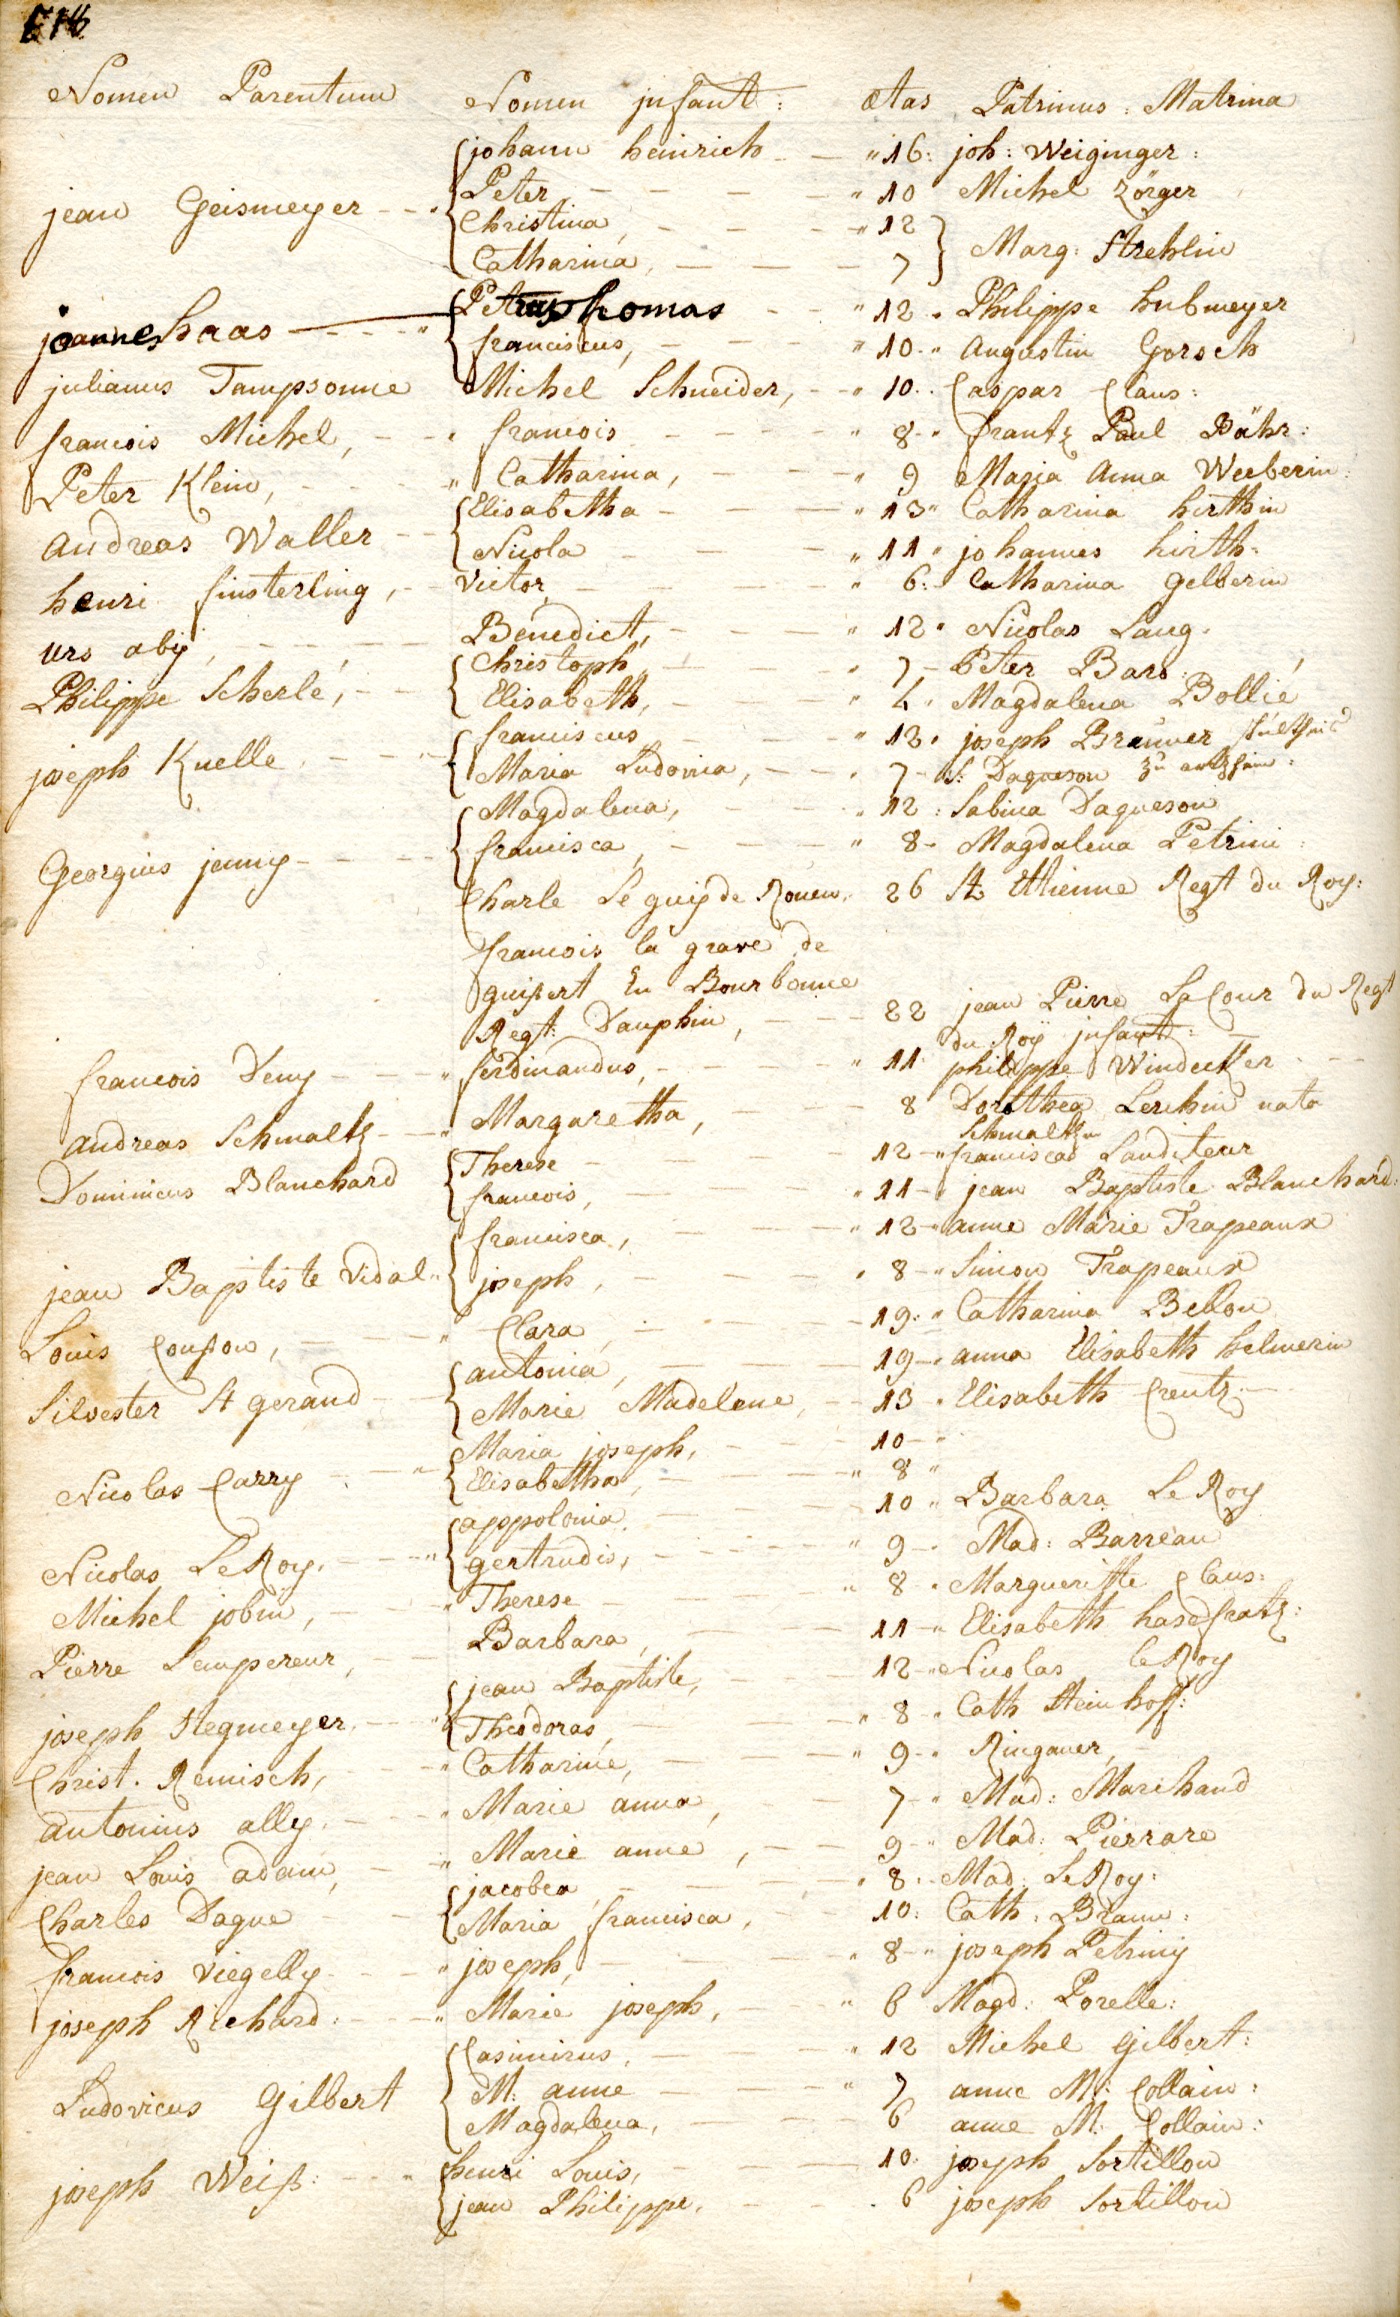 Nomen Parentum Nomen infant: ætas Patrinus: Matrina
johann heinrich " 16: joh: Weiginger:
Peter " 10 Michel Zörger
jean Geismeyer Christina, " 12
Catharina, 7 Marg: Strehlin
Petrus thomas " 12 Philippe hubmeyer
joannes haas franciscus, " 10 " Augustin Gorsch
julianus Tampsonne Michel Schneider, " 10 Caspar Claus:
francois Michel, francois " 8 " frantz Paul Bähr:
Peter Klein, " Catharina, " 9 Maria Anna Weeberin:
Elisabetha " 13 " Catharina hirthin
Andreas Waller Nicola " 11 " johannes hirth:
henri finsterling, Victor, " 6: Catharina Gelberin
urs abÿ, Benedict, " 12 " Nicolas Lang.
Christoph " 7 Peter Bars:
Philippe Scherle, Elisabeth, " 4 " Magdalena Bollié
franciscus " 12 " joseph Brauner
joseph Knelle Maria Ludovica, " 7 S: Dagueson
Magdalena, " 12 : Sabina Dagueson
Georgius jenny francisca, " 8 Magdalena Petrini:
Charle Le guÿ de Rouen, 26 St Etienne Regt du Roy:
francois la grave de
guipert En Bourbonne
Regt: Dauphin, 22 jean Pierre LaCour du Regt
du Roÿ infant:
francois Deny " ferdinandus, " 11 philippe Windecker
Andreas Schmaltz Margaretha, 8 Dorothea Lerchin nata
Schmaltzin
Therese 12 " franciscad Lauditeur
Dominicus Blanchard francois, " 11 " jean Baptiste Blanchard:
francisca, " 12 " anne Marie Trapeaux
jean Baptiste Vidal " joseph, " 8 " Simon Trapeaux
Louis Coupon, " Clara, 19: " Catharina Bellon
antonia, 19 " anna Elisabeth helmerin
Silvester St gerand Marie Madelene, 13 " Elisabeth Creutz:
Maria joseph, 10 "
Nicolas Carry " Elisabetha, " 8 "
appolonia, 10 " Barbara Le Roy
Nicolas LeRoy, " gertrudis, " 9 Mad: Barreau
Michel jobin, " Therese " 8 " Margueritte Claus:
Pierre Lempereur, Barbara, 11 " Elisabeth hasefratz:
jean Baptiste, 12 " Nicolas leRoy
joseph Stegmeyer, Theodoras, " 8 " Cath Steinhoff:
Christ. Remisch, " Catharine, " 9 " Ringauer,
antonius ally, " Marie anna, 7 " Mad: Marchand
jean Louis adam, " Marie anne, 9 " Mad: Pierrare
jacobea, " 8. Mad: LeRoy:
Charles Dague Maria francisca, 10: Cath: Braun:
francois Viegelly " joseph, " 8 " joseph Petriny
joseph Richard: " Marie joseph, " 6 Magd: Porelle:
Casimirus, " 12 Michel Gilbert:
Ludovicus Gilbert M: anne " 7 anne M: Collain:
Magdalena, 6 anne M: Collain:
henri Louis, 10: joseph Sortillon
joseph Weiß: " jean Philippe, 6 joseph Sortillon